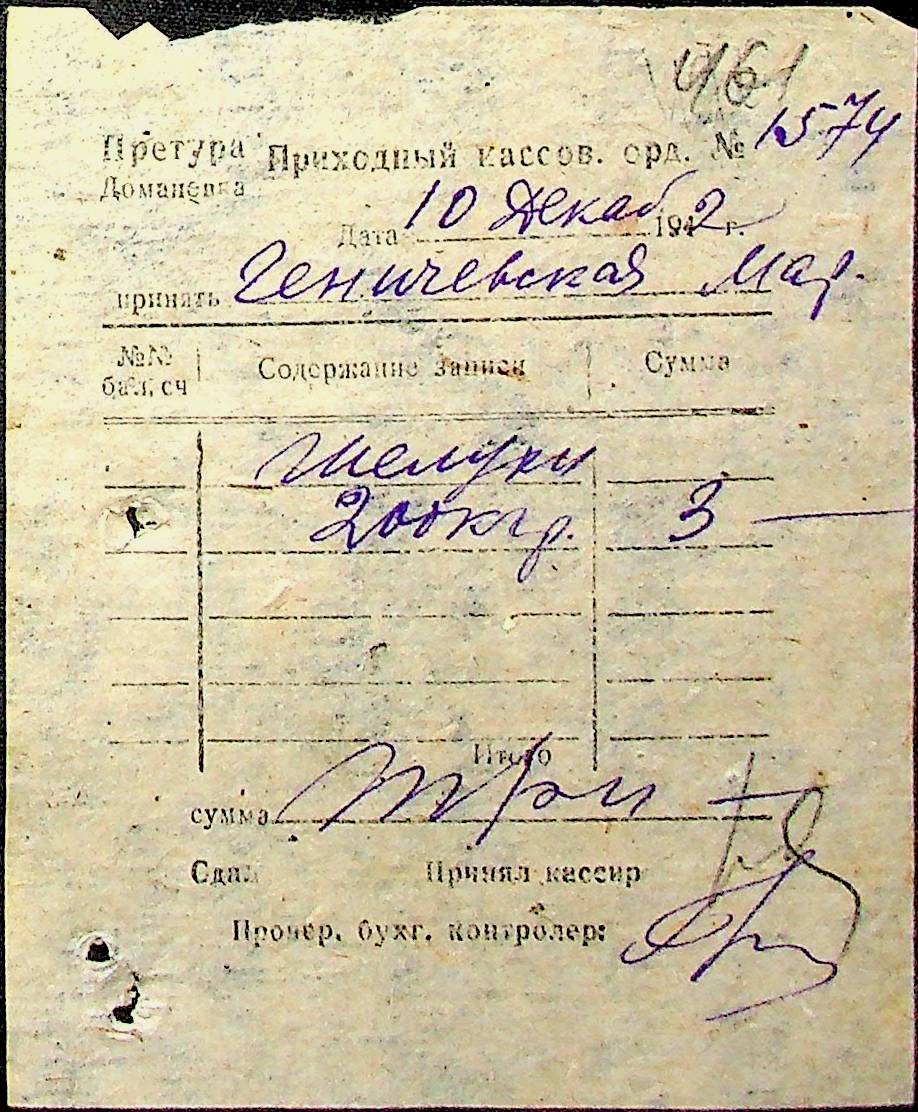 461
Претура Приходный кассов. орд. № 1574
Доманевка
Дата 10 Декаб 1942 г.
принять Геничевская Мар.
№№ бал. сч Содержание записи Сумма
Шелухи
200 кгр. 3 —
Итого
сумма Три —
Сдал Принял кассир
Провер. бухг. контролер: